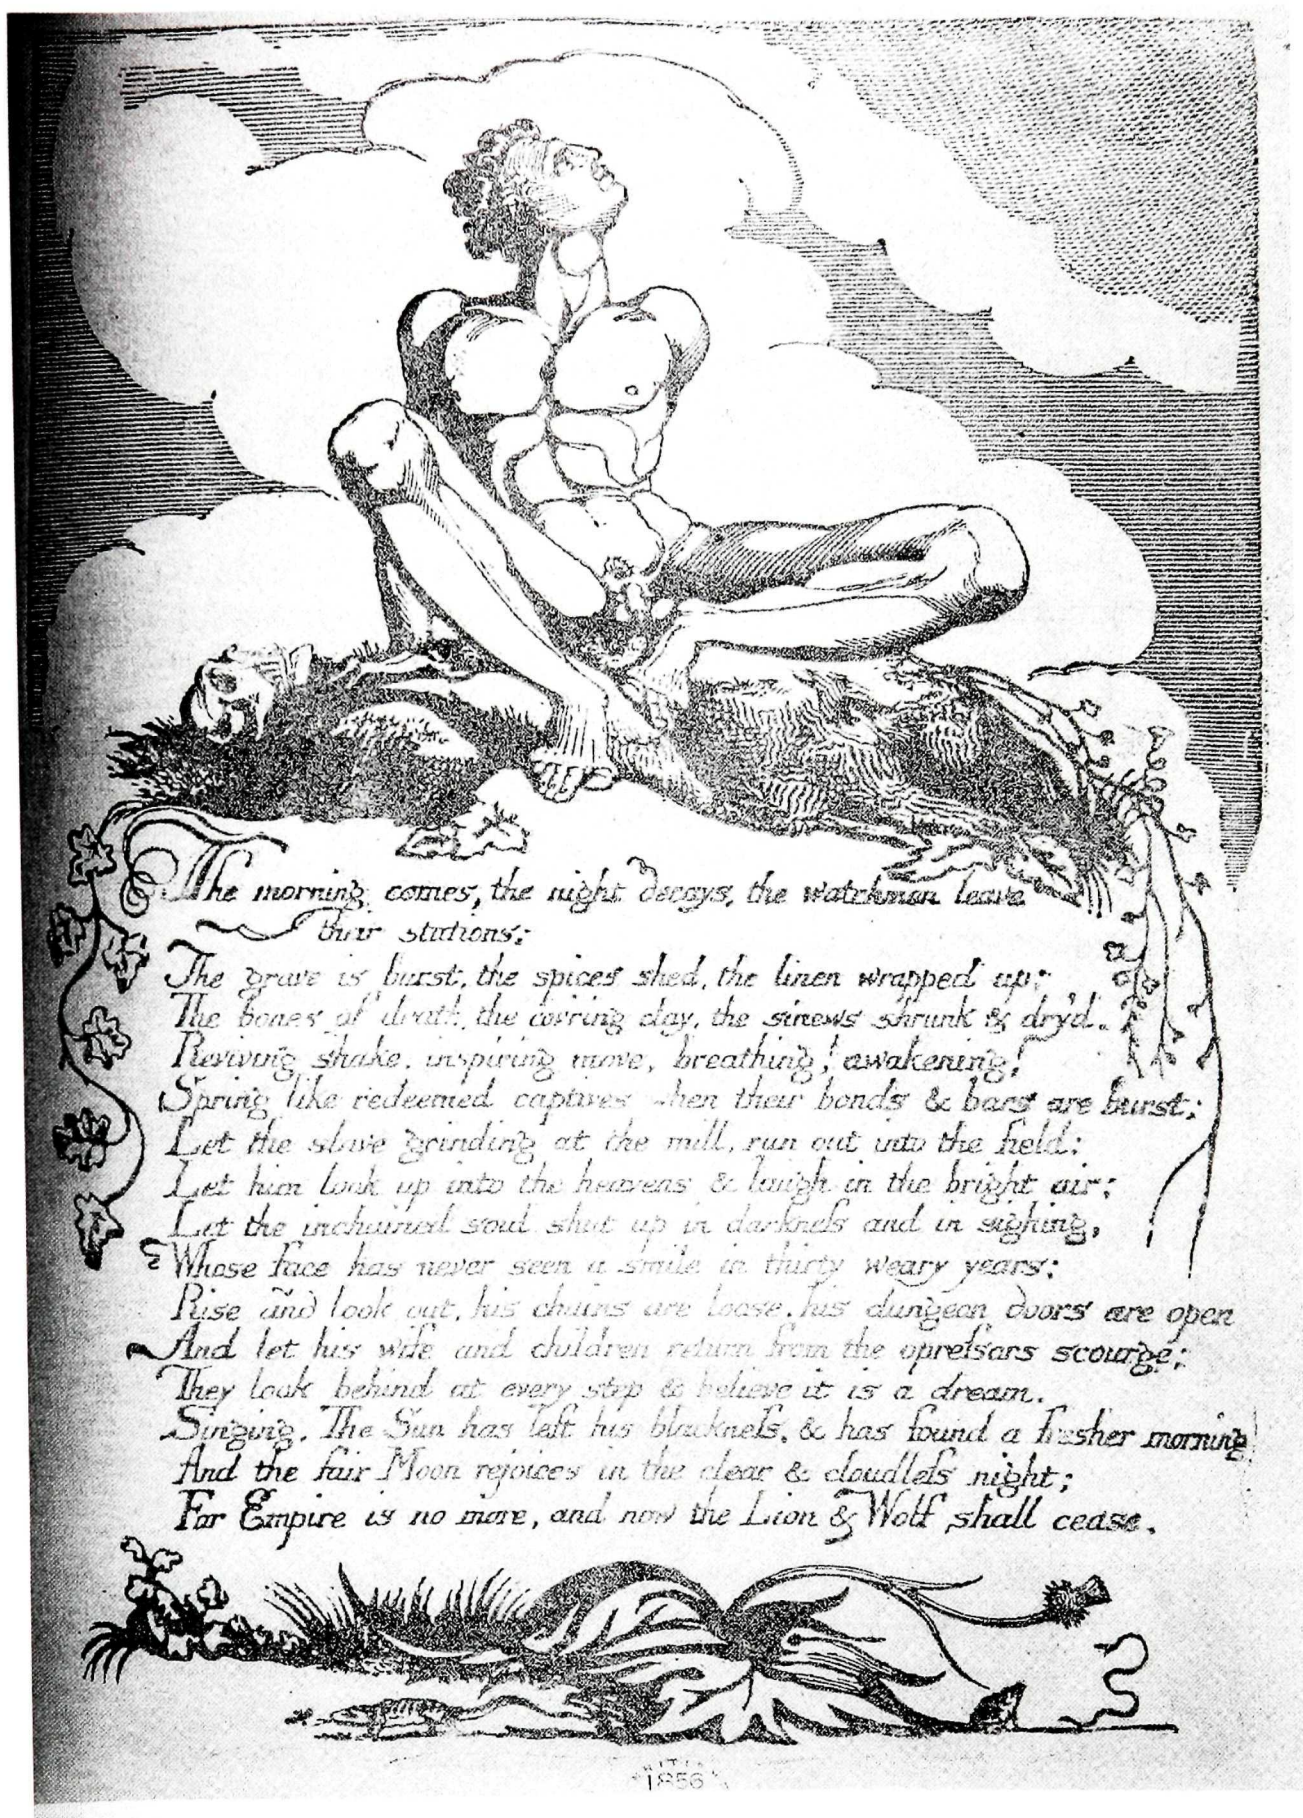 The morning comes, the night decays, the watchmen leave
their stations;
The grave is burst, the spices shed, the linen wrapped up;
The bones of death, the cov'ring clay, the sinews shrunk & dry'd.
Reviving shake, inspiring move, breathing! awakening!
Spring like redeemed captives when their bonds & bars are burst;
Let the slave grinding at the mill, run out into the field:
Let him look up into the heavens & laugh in the bright air;
Let the inchained soul shut up in darkneſs and in sighing,
Whose face has never seen a smile in thirty weary years;
Rise and look out, his chains are loose, his dungeon doors are open
And let his wife and children return from the opreſsors scourge;
They look behind at every step & believe it is a dream.
Singing. The Sun has left his blackneſs, & has found a fresher morning
And the fair Moon rejoices in the clear & cloudleſs night;
For Empire is no more, and now the Lion & Wolf shall cease.
1856